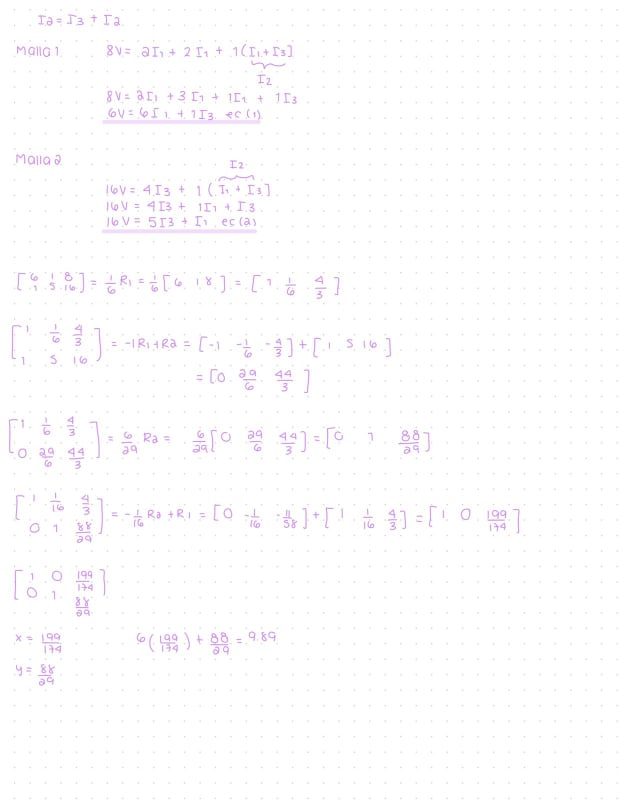 I2 = I3 + I2
Malla 1 8V = 2I1 + 2I1 + 1(I1+I3]
I2
8V = 2I1 + 3I1 + 1I1 + 1I3
6V = 6I1 + 1I3 ec(1)
Malla 2
I2
16V = 4I3 + 1 (I1 + I3]
16V = 4I3 + 1I1 + I3
16V = 5I3 + I1 ec(2)
[6 1 8 / 1 5 16] = 1/6 R1 = 1/6 [6 1 8] = [1 1/6 4/3]
[1 1/6 4/3 / 1 5 16] = -1R1+R2 = [-1 -1/6 -4/3] + [1 5 16]
= [0 29/6 44/3]
[1 1/6 4/3 / 0 29/6 44/3] = 6/29 R2 = 6/29 [0 29/6 44/3] = [0 1 88/29]
[1 1/16 4/3 / 0 1 88/29] = -1/16 R2 + R1 = [0 -1/16 -11/58] + [1 1/16 4/3] = [1 0 199/174]
[1 0 199/174 / 0 1 88/29]
x = 199/174 6(199/174) + 88/29 = 9.89
y = 88/29